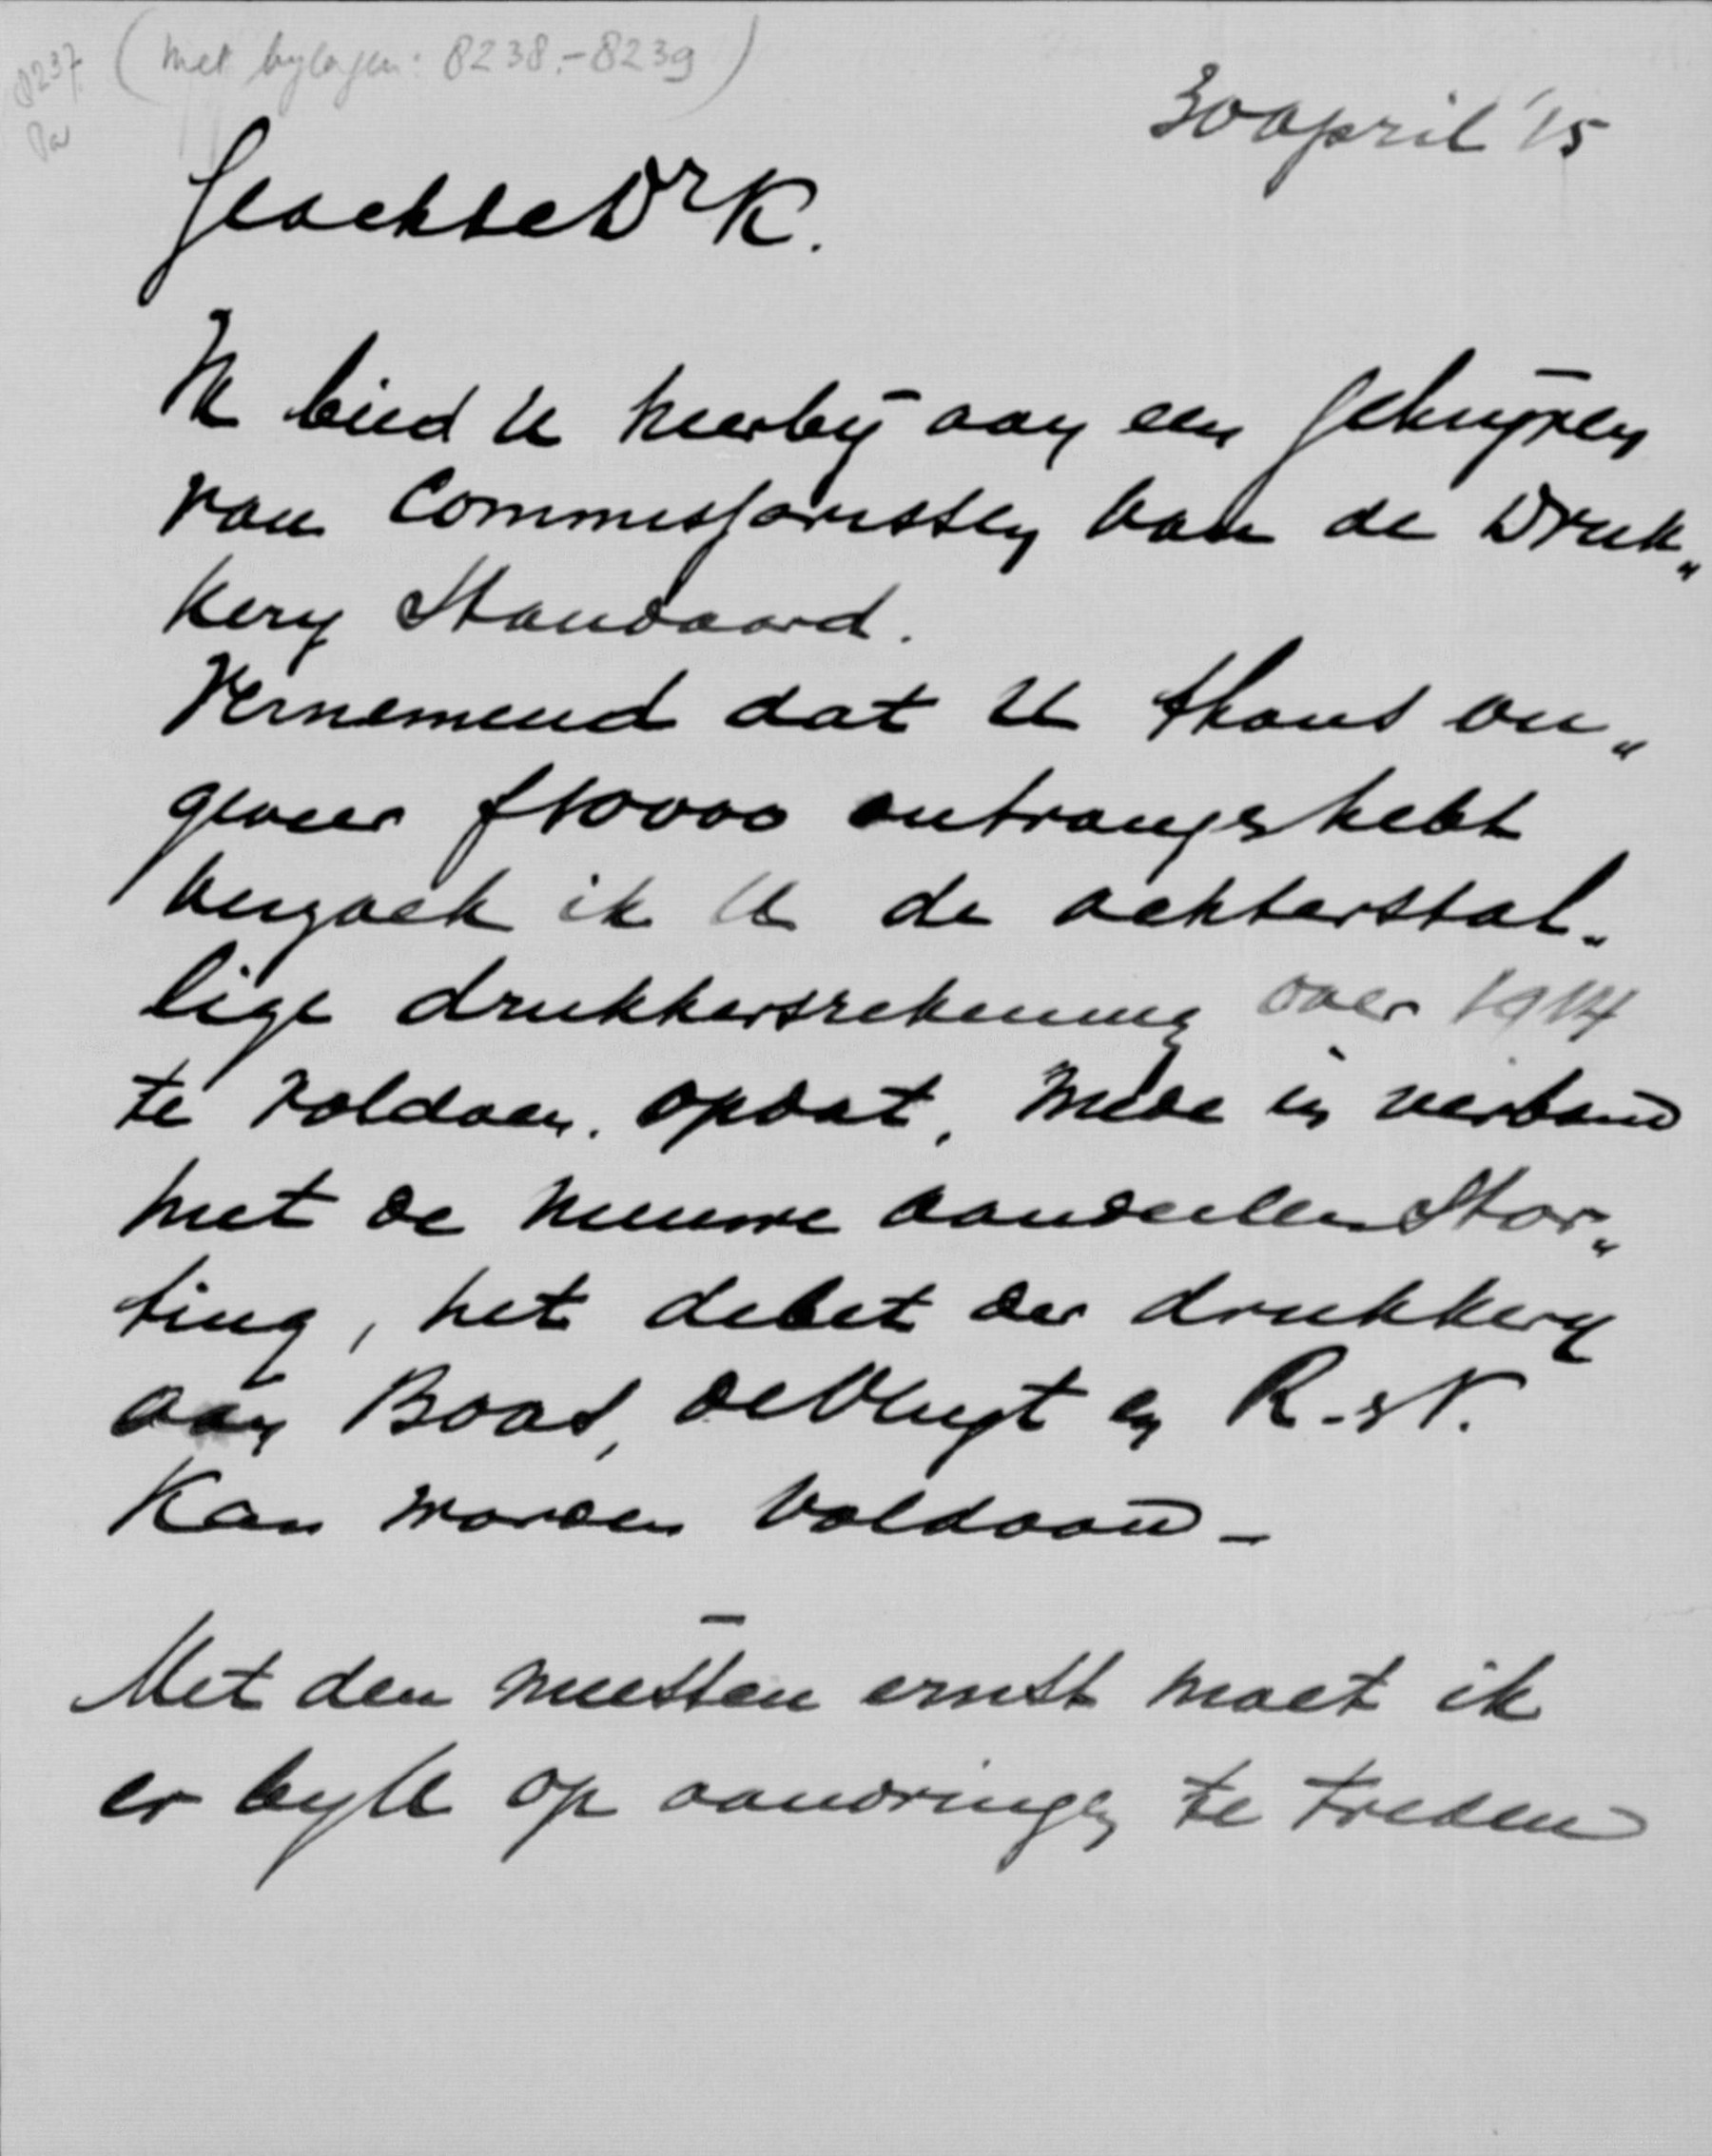 8237.
(met bylagen: 8238.-8239)
30 april '15
Geachte Dr K.
Ik bied U hierbij aan een schrijven
van Commissarissen van de Druk„
kery Standaard.
Vernemend dat U thans on„
geveer f10000 ontvangen hebt
verzoek ik U de achterstal„
lige drukkersrekening over 1914
te voldoen. opdat, mede in verband
met de nieuwe aandeelen Stor„
ting, het debet der drukkery
aan Boas, de Vlugt en R. & N.
Kan worden voldaan –
Met den meesten ernst moet ik
er by U op aandringen te treden